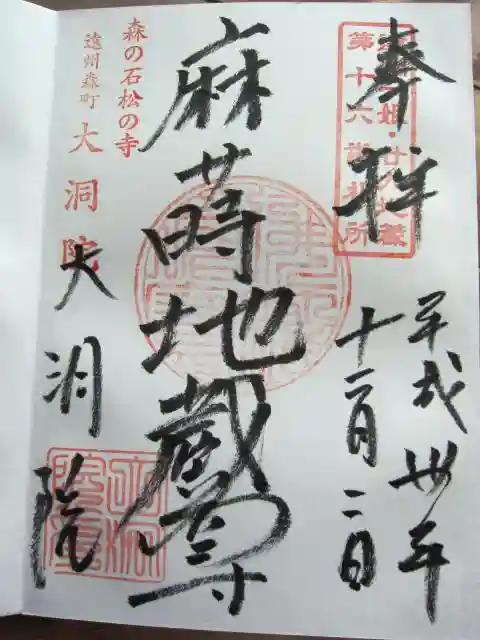 奉拝
第十六番札所
平成卅年
十二月二日
麻蒔地蔵尊
森の石松の寺
遠州森町 大洞院
大洞院